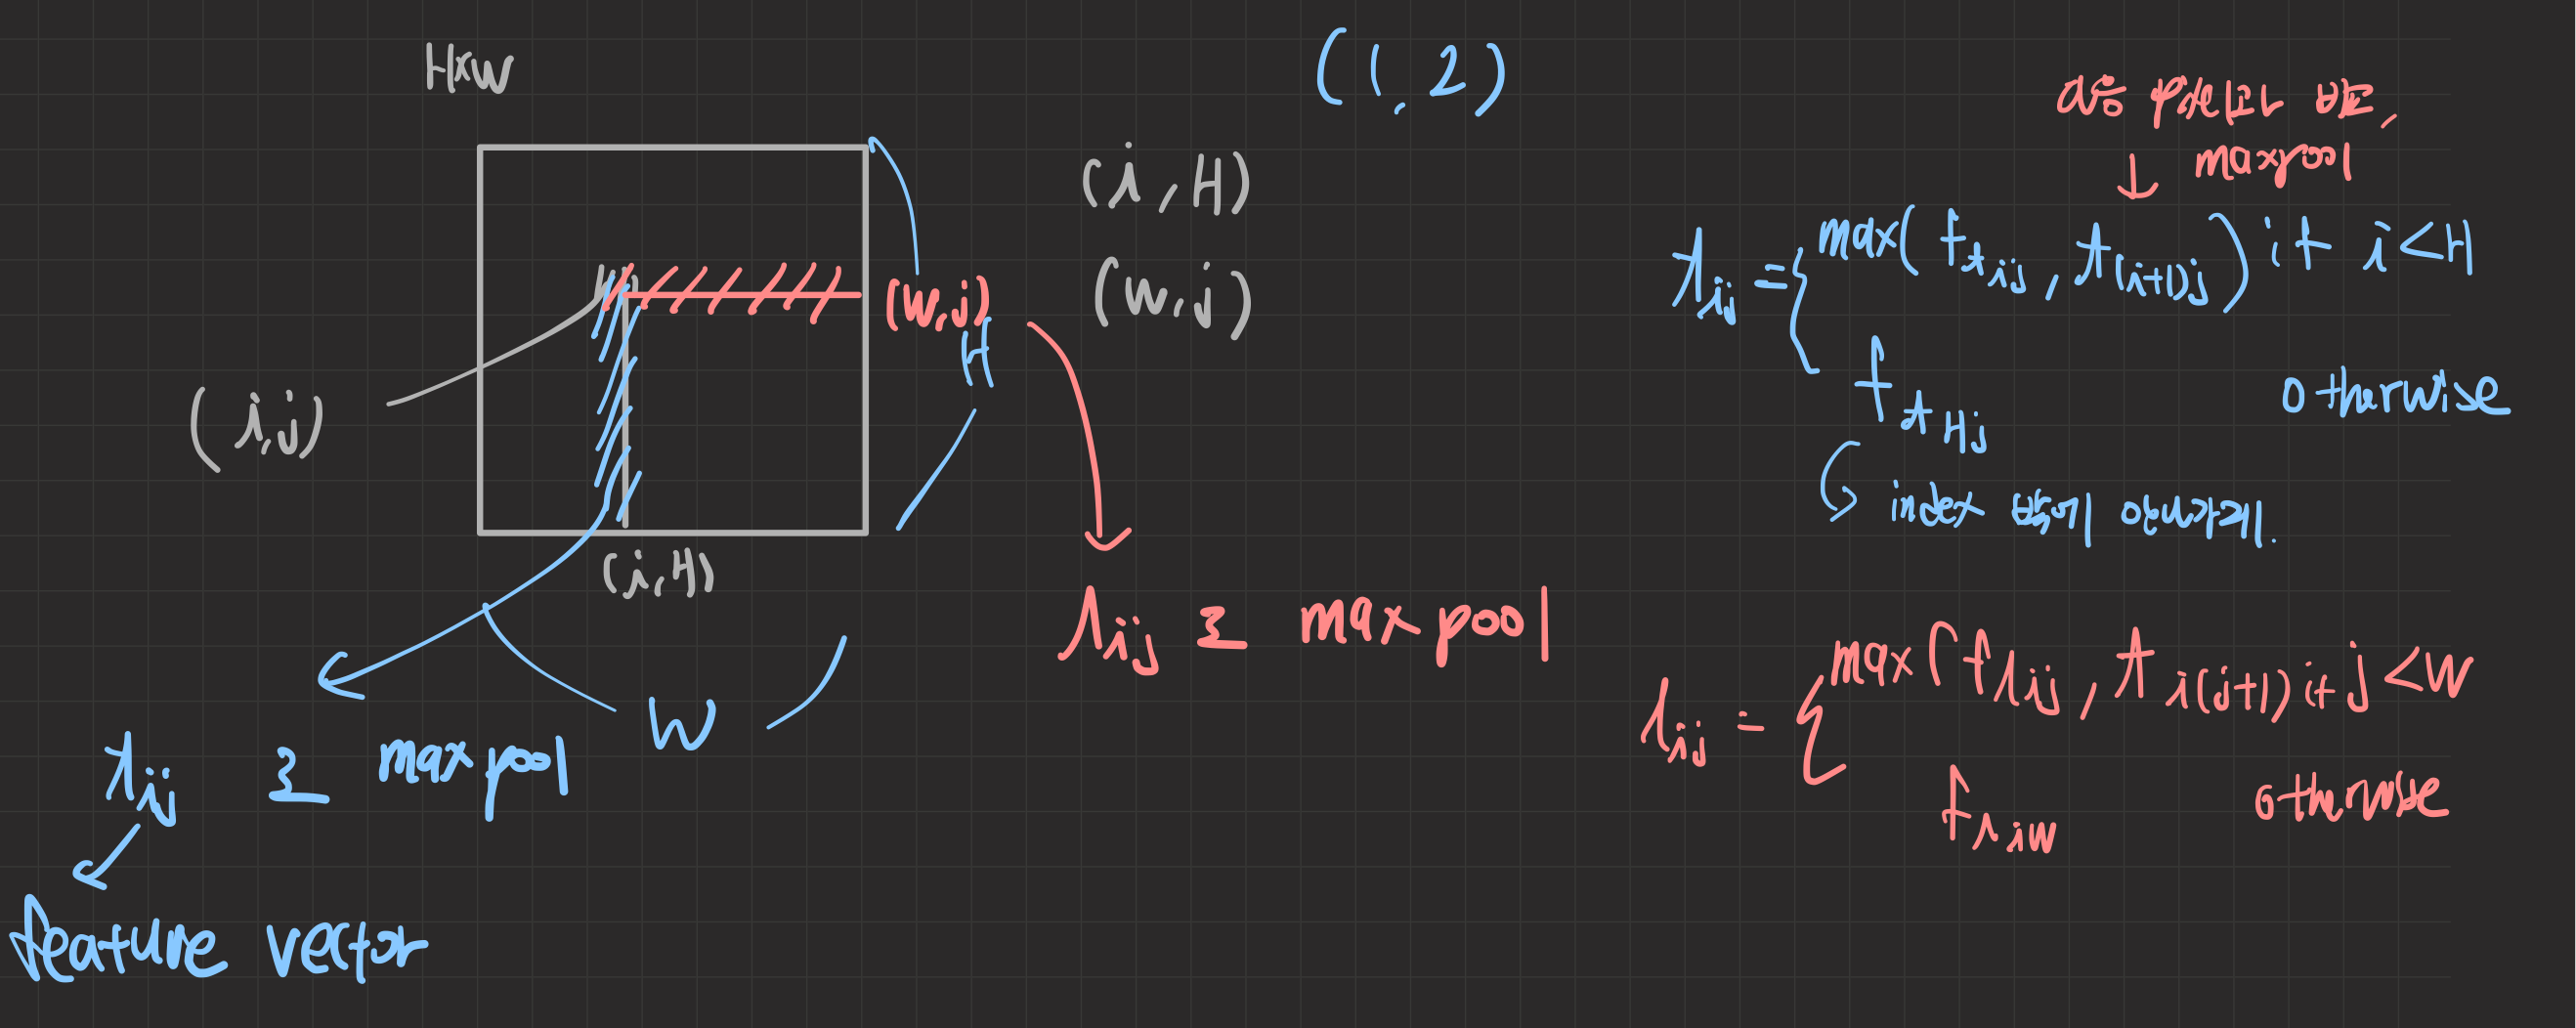 H×W
(1, 2)
(i, H)
(w, j)
(w, j)
H
(i, j)
(i, H)
W
t_ij 로 maxpool
feature vector
l_ij 로 maxpool
다음 픽셀과 비교,
↓ maxpool
t_ij = { max(f_t_ij, t_(i+1)j) if i<H
f_t_Hj otherwise
index
l_ij = { max(f_l_ij, t_i(j+1)) if j<W
f_l_iw otherwise